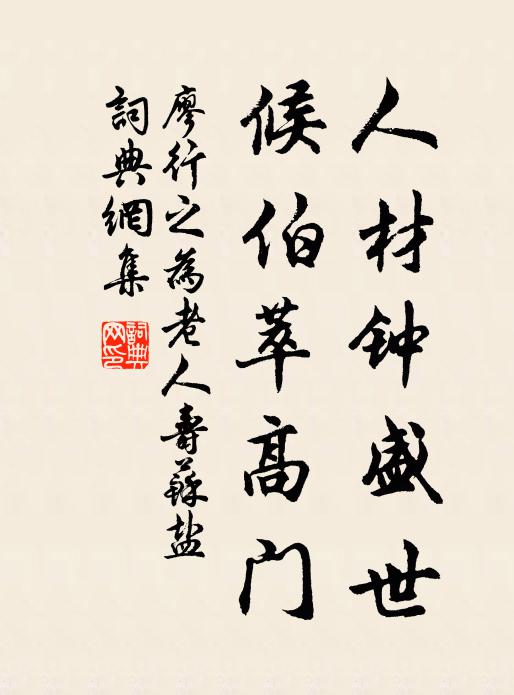 人材钟盛世
候伯萃高门
廖行之為老人壽蘇盐
詞典網集
詞典
网印